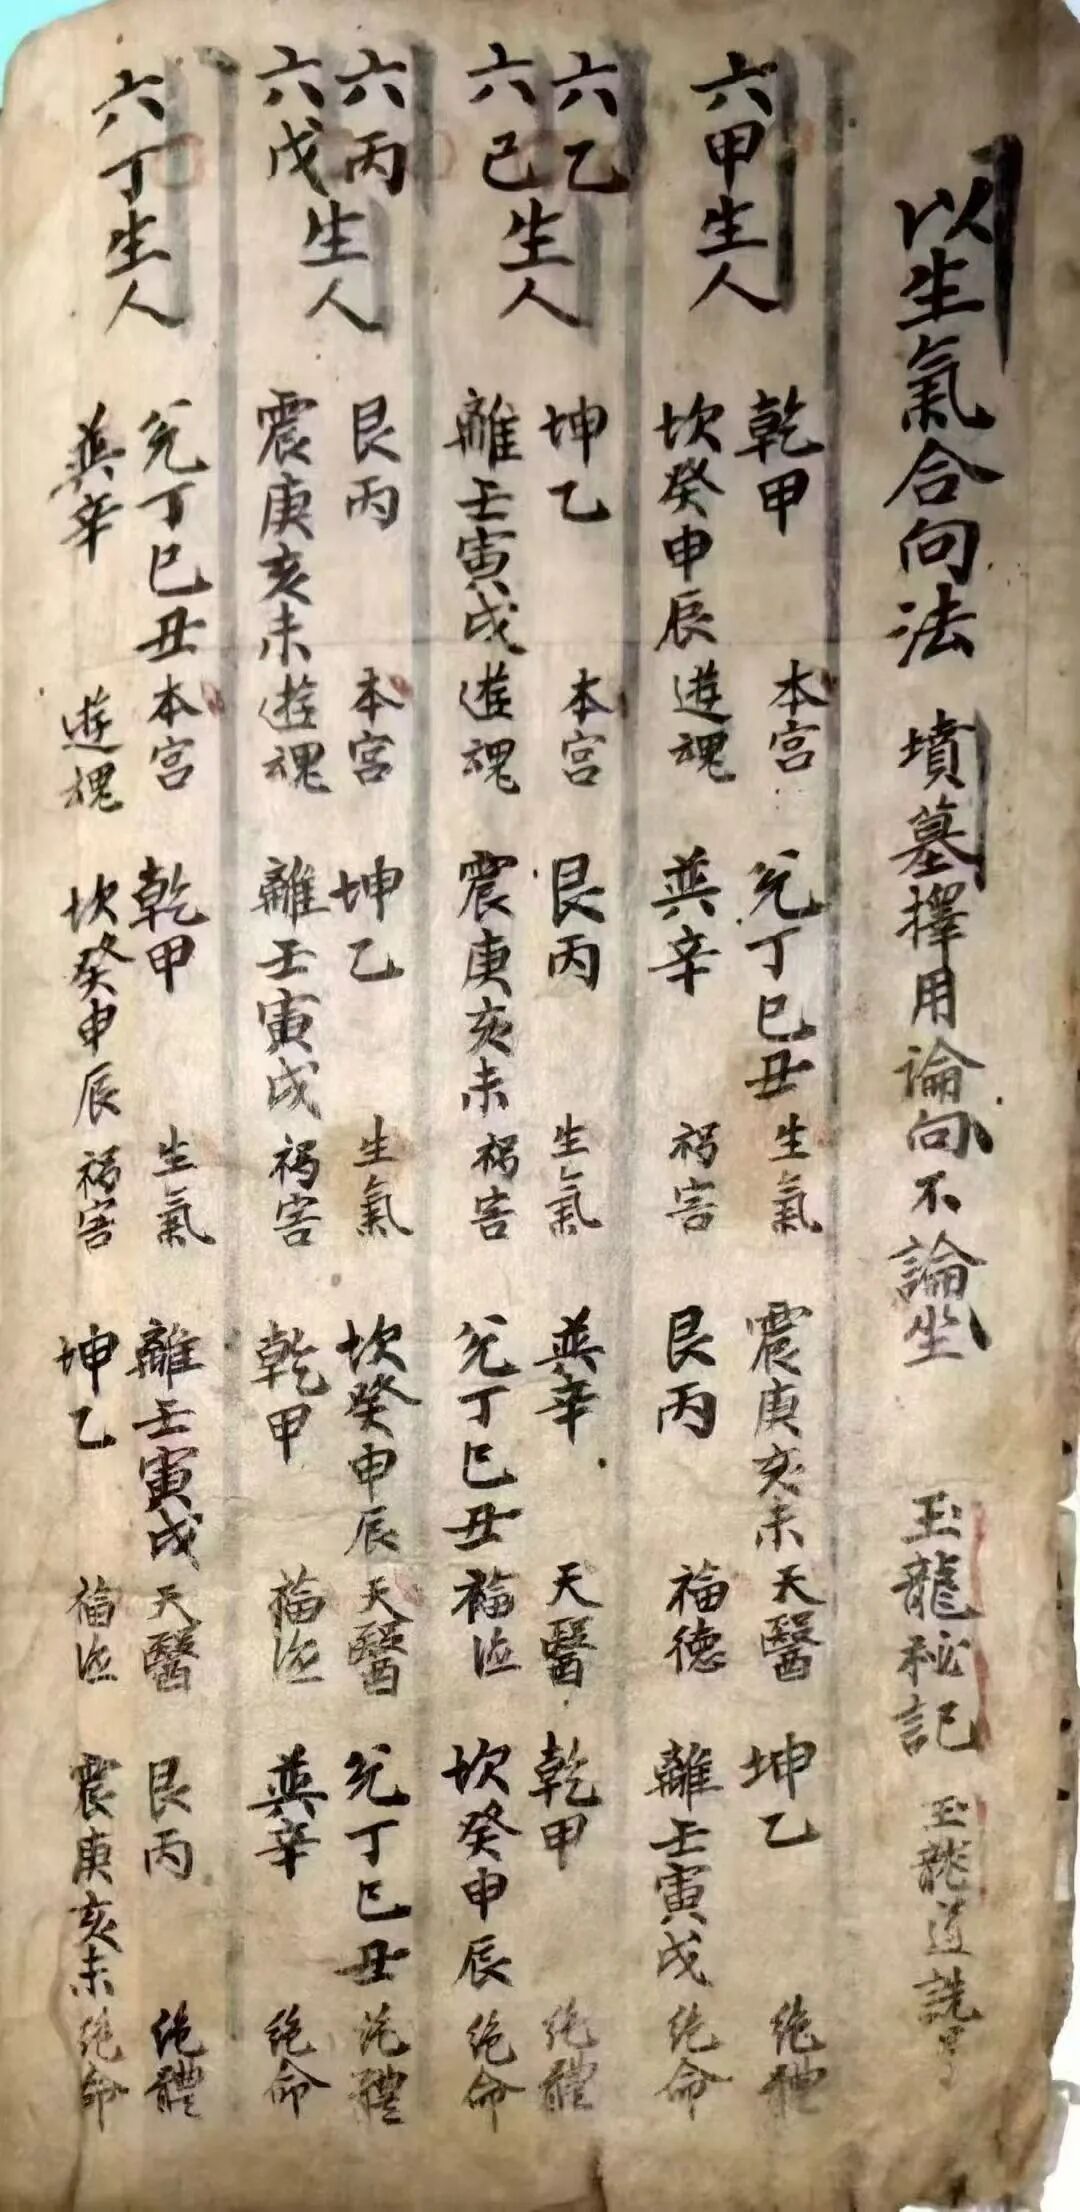 以生氣合向法 墳墓擇用論向不論坐 玉龍秘記 玉龍道詵
六甲生人
乾甲 本宮 兌丁巳丑 生氣 震庚亥未 天醫 坤乙 絶體
坎癸申辰 遊魂 巽辛 禍害 艮丙 福德 離壬寅戌 绝命
六乙
六己生人
坤乙 本宮 艮丙 生氣 巽辛 天醫 乾甲 绝體
離壬寅戌 遊魂 震庚亥未 禍害 兌丁巳丑 福德 坎癸申辰 绝命
六丙
六戊生人
艮丙 本宮 坤乙 生氣 坎癸申辰 天醫 兌丁巳丑 绝體
震庚亥未 遊魂 離壬寅戌 禍害 乾甲 福德 巽辛 绝命
六丁生人
兌丁巳丑 本宮 乾甲 生氣 離壬寅戌 天醫 艮丙 绝體
巽辛 遊魂 坎癸申辰 禍害 坤乙 福德 震庚亥未 绝命